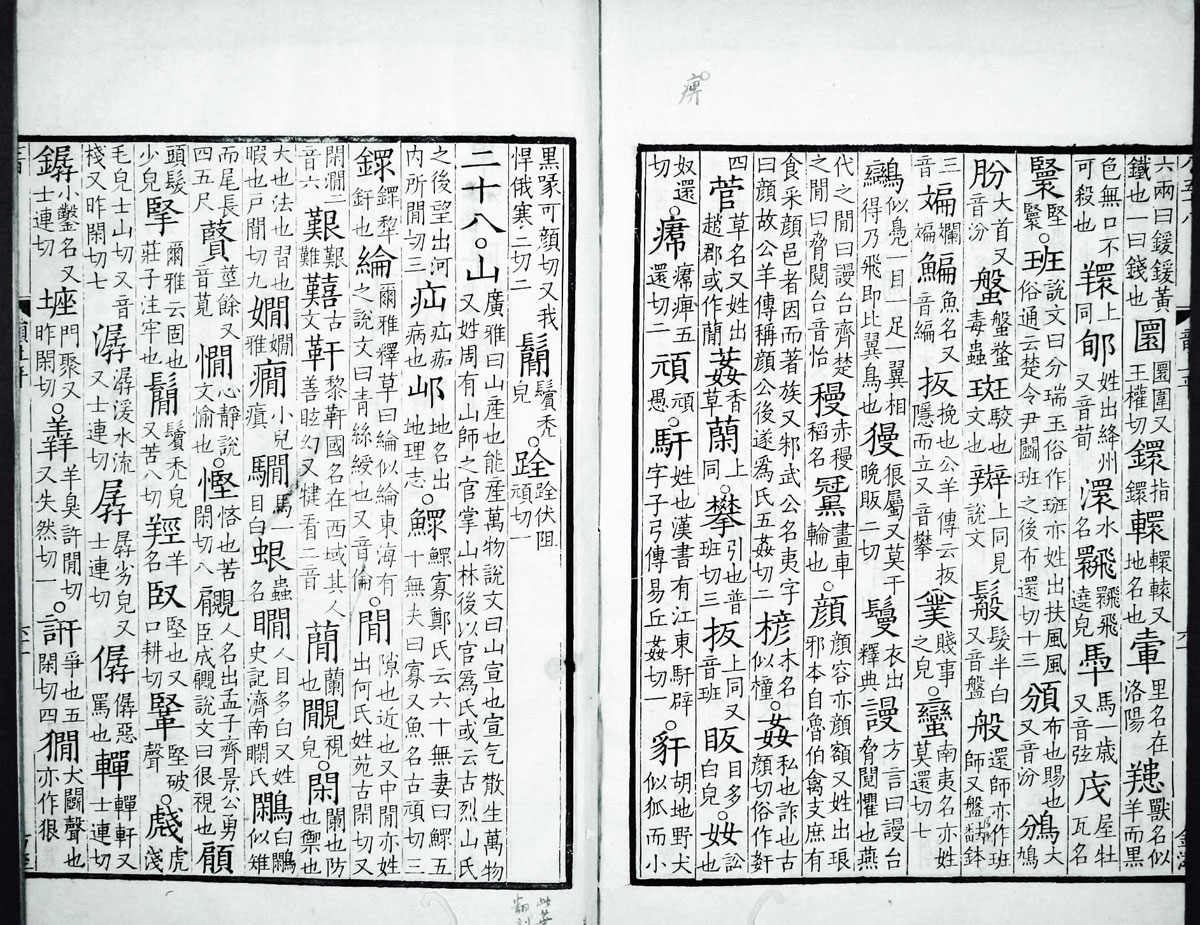 六兩曰鍰鍰黃鐵也一曰錢也圜圜圍又王權切鐶指鐶轘轘轅又地名也里名在洛陽羦獸名似羊而黑
色無口不可殺也上同郇姓出絳州又音荀澴水名飛遶皃馬一歲又音弦屋牡瓦名
堅。班說文曰分瑞玉俗作班亦姓出扶風風俗通云楚令尹鬬班之後布還切十三頒布也賜也又音汾鳻大鳻鳩
朌大首又音汾螌螌蝥毒蟲斑駮也文也辬上同見說文鬆髮半白又音盤般還師亦作班師又盤鉢
三斒斕又音斒鯿魚名又音編扳挽也公羊傳云扳隱而立又音攀賤事之皃。蠻南夷名亦姓莫還切七
鸍似鳧一目一足一翼相得乃飛即比翼鳥也獌狼屬又莫干晚販二切鬘衣出釋典謾方言曰謾台脅䦧懼也燕
代之閒曰謾台齊楚之閒曰脅䦧台音怡䅼赤䅼稻名畫車輪也。顏顏容亦顏額又姓出琅邪本自魯伯禽支庶有
食采顏邑者因而著族又邪武公名夷字曰顏故公羊傳稱顏公後遂爲氏五姦切二楌木名似橦。姦私也詐也古顏切俗作姧
四菅草名又姓出趙郡或作蕑葌香草蕳上同。攀引也普班切三扳上同又音班眅目多白皃。奻訟也
奴還切。㾛㾛痺五還切二頑頑愚。馯姓也漢書有江東馯臂字子弓傳易丘姦切一。豻胡地野犬似狐而小
黒喙可顏切又我悍俄寒二切二鬜鬢禿皃。跧跧伏阻頑切一
二十八。山廣雅曰山產也能產萬物說文曰山宣也宣气㪚生萬物又姓周有山師之官掌山林後以官爲氏或云古烈山氏
之後望出河內所閒切三疝疝痂病也邖地名出地理志。鰥鰥寡鄭氏云六十無妻曰鰥五十無夫曰寡又魚名古頑切三
鏍犂釬也綸爾雅釋草曰綸似綸東海有之說文曰青絲綬也又音倫。閒隙也近也又中閒亦姓出何氏姓苑古閑切又
閑澗二音六艱艱難囏古文靬黎靬國名在西域其人善眩幻又犍看二音蕑蘭也覸視皃。閑闌也防也禦也
大也法也習也暇也戸閒切九嫺嫺雅癇小兒瘨騆馬一目白蟲名瞯人目多白又姓史記濟南瞯氏鷴白鷴似雉
而尾長四五尺莖餘又音莧憪心靜說文愉也。慳悋也苦閑切八覸人名出孟子齊景公勇臣成覸說文曰很視也顅
頭鬢少皃掔爾雅云固也莊子注牢也鬜鬢禿皃又苦八切羥羊名臤堅也又口耕切堅破聲。虥虎淺
毛皃士山切又音棧又昨閑切七潺潺湲水流又士連切孱孱劣皃又士連切僝僝惡罵也轏軒又士連切
小鑿名又士連切門聚又昨閑切。羴羊臭許閒切又失然切一。訮爭也五閑切四犬鬬聲也亦作狠